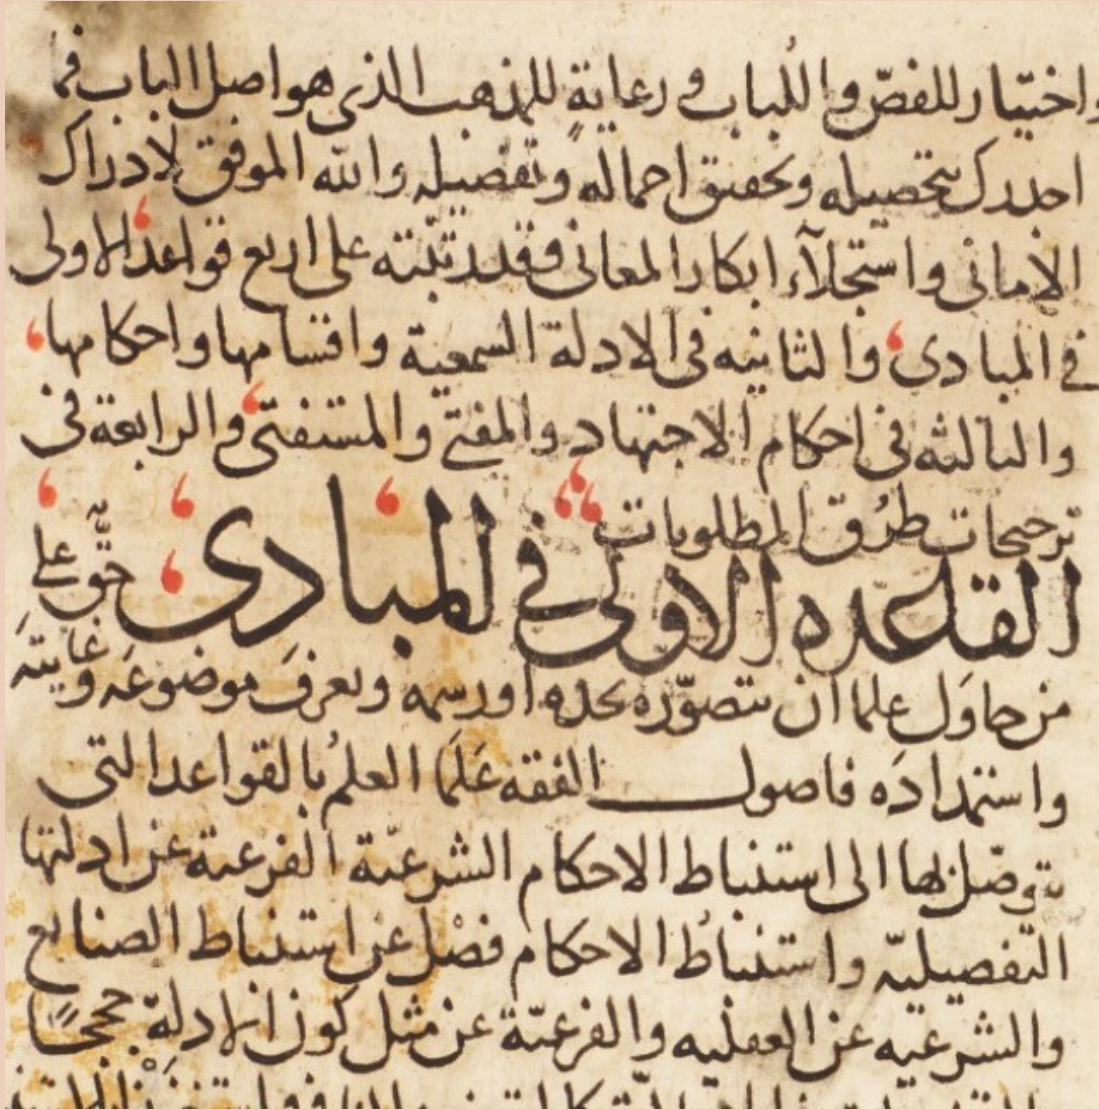 واختيار للفصّ واللُباب ورعايةٍ للمذهب الذى هو اصل الباب فما
اجدرك بتحصيله وتحقيق اجماله وتفصيله والله الموفق لادراك
الامانى واستجلآء ابكار المعانى وقد رتّبته على اربع قواعد الاولى
فى المبادى والثانيه فى الادلة السمعية واقسامها واحكامها
والثالثه فى احكام الاجتهاد والمفتى والمستفتى والرابعة فى
ترجيحات طرُق المطلوبات
القاعده الاولى فى المبادى حقٌّ على
من حاوَل علما ان يتصوّره بحده او رسمه ويعرفَ موضوعَه وغايتَه
واستمدادَه فاصول الفقه عَلَما العلمُ بالقواعد التى
يتوصّل بها الى استنباط الاحكام الشرعيّة الفرعية عن ادلتها
التفصيليّه واستنباطُ الاحكام فصْل عن استنباط الصنايع
والشرعيّه عن العقليه والفرعيّة عن مثل كون الادلة حججًا